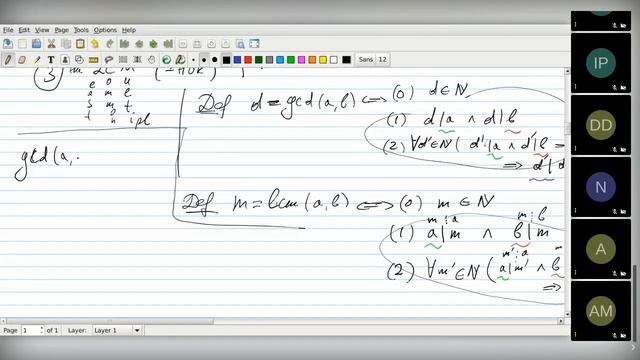 File Edit View Journal Page Tools Options Help
Sans 12
③ LCM
gcd(a,
Def d = gcd(a,b) ⟺ (0) d∈ℕ
(1) d|a ∧ d|b
(2) ∀d'∈ℕ( d'|a ∧ d'|b
⟹ d|d
Def m = lcm(a,b) ⟺ (0) m∈ℕ
m⋮a m⋮b
(1) a|m ∧ b|m
m'⋮a m
(2) ∀m'∈ℕ(a|m' ∧ b
⟹
Page 1 of 1 Layer: Layer 1
IP
DD
N
A
AM